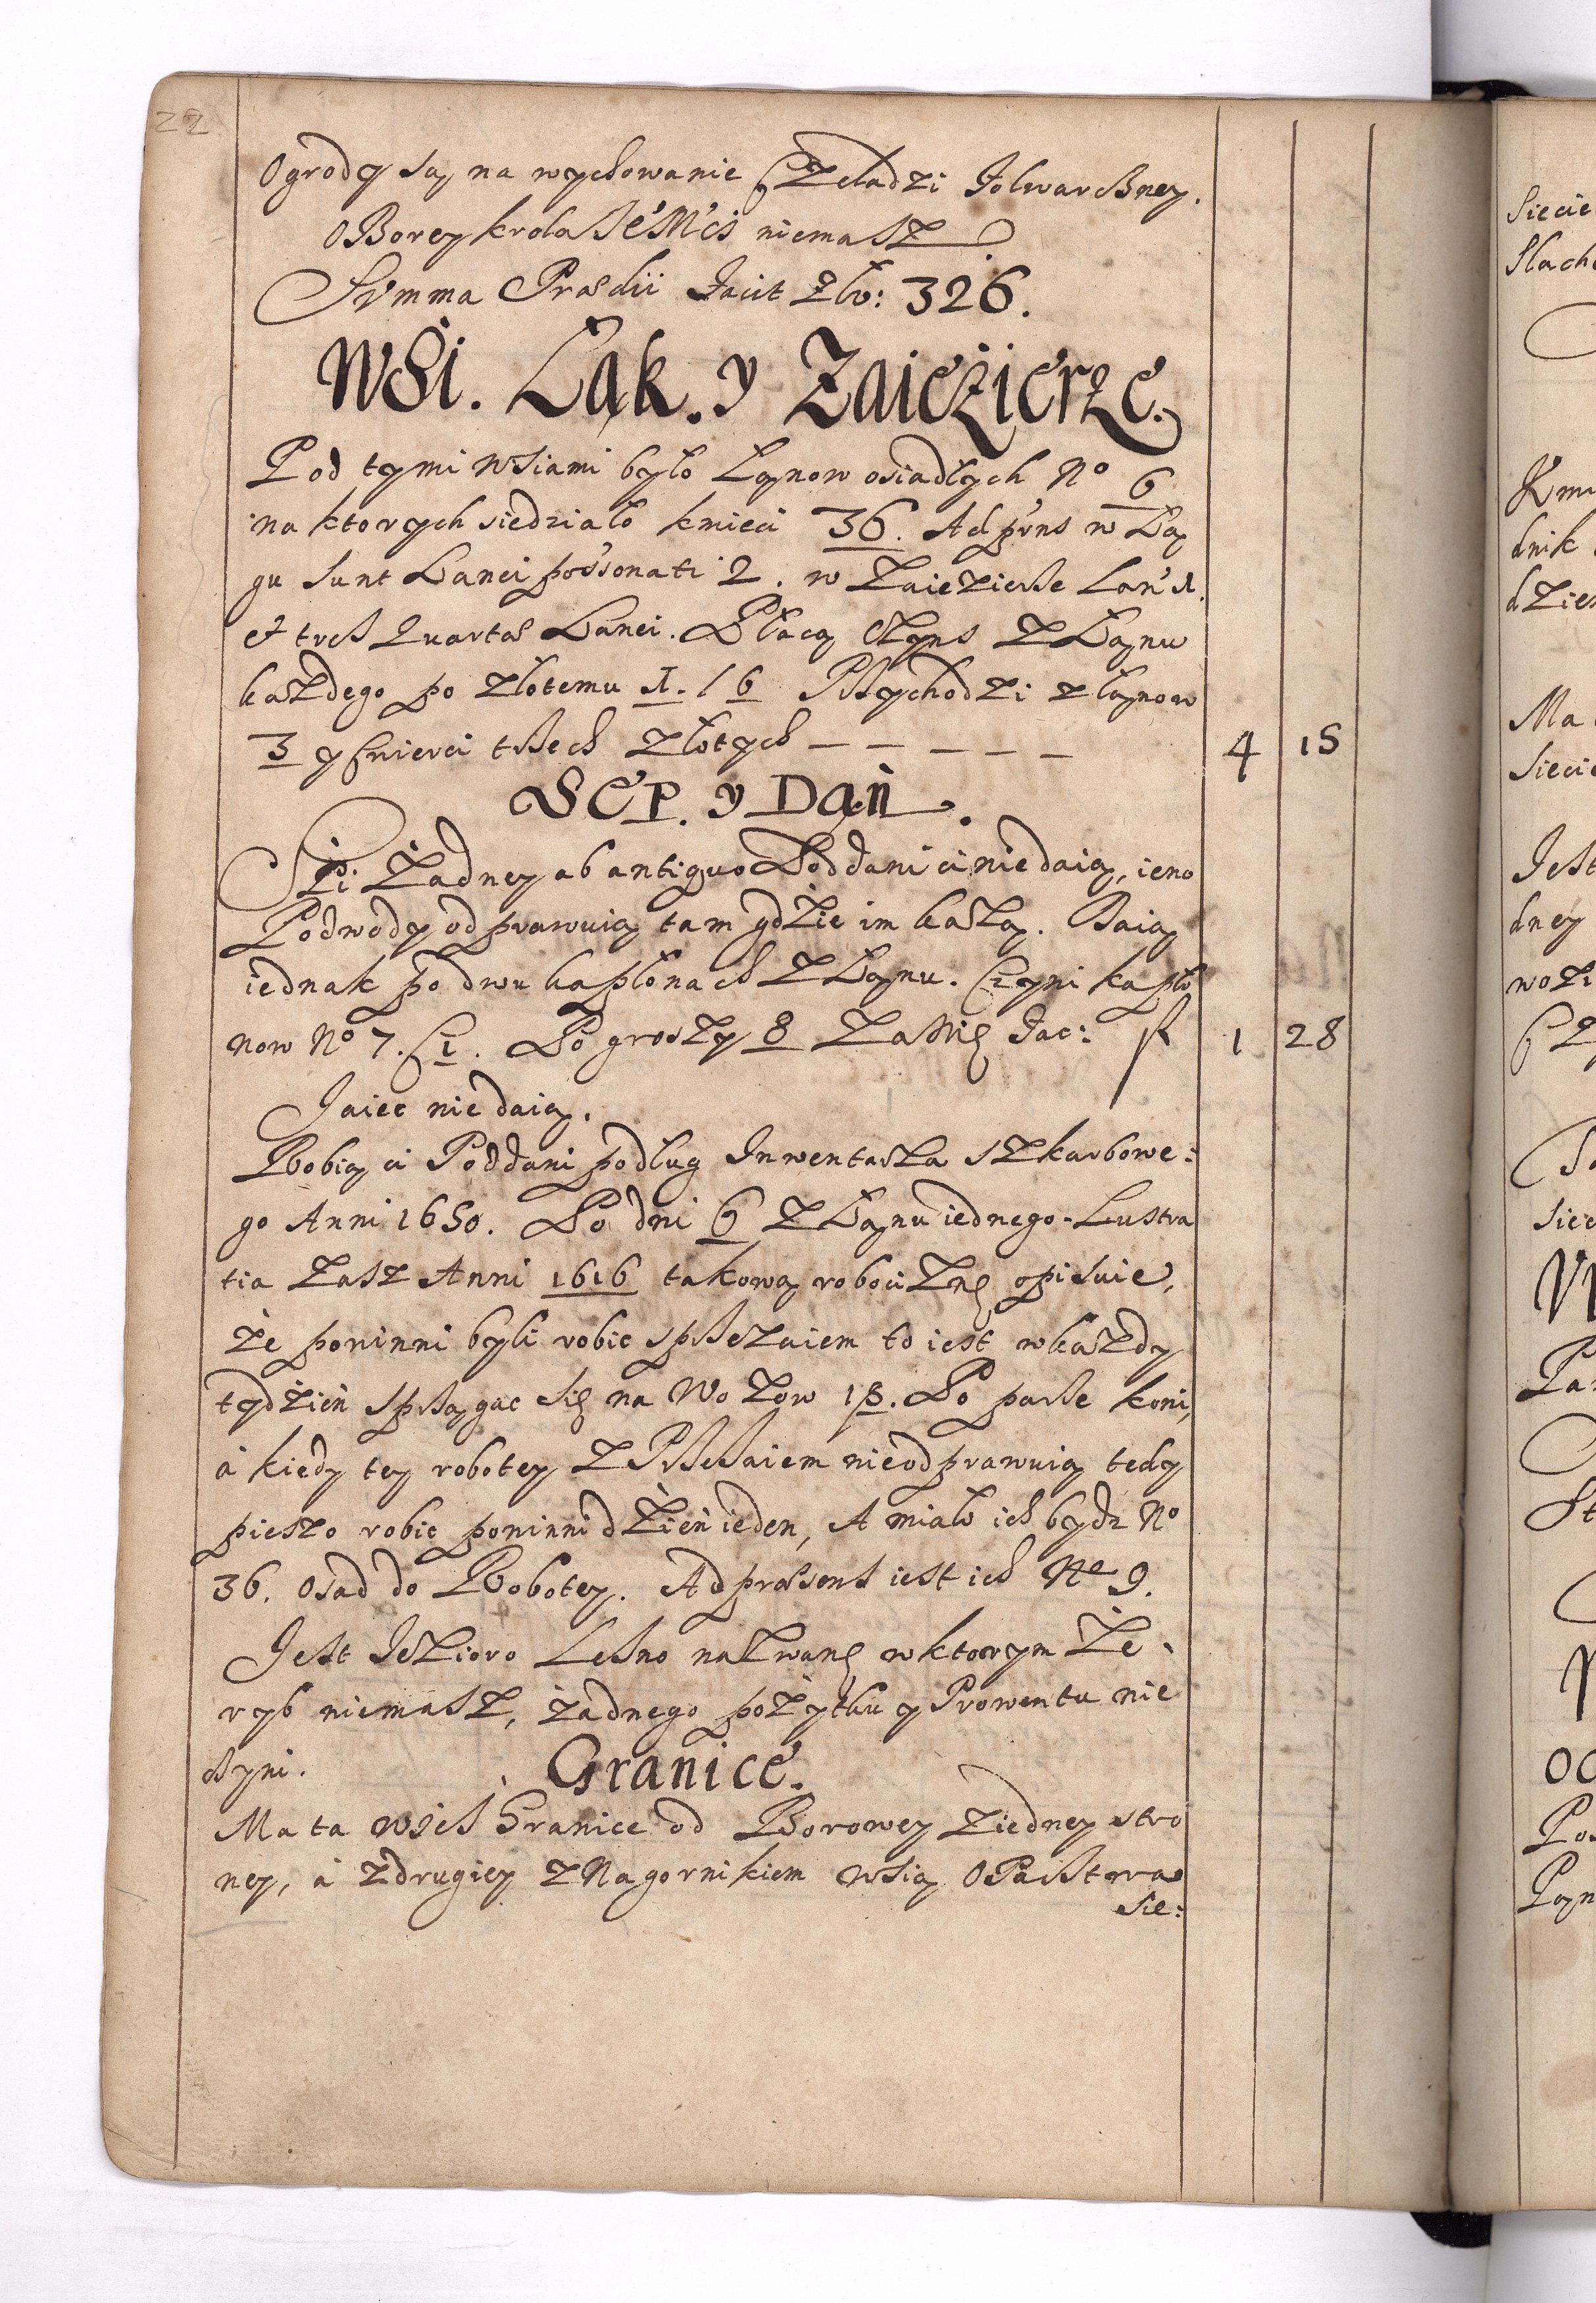 22
Ogrody są na wychowanie Czeladzi Folwarczney.
Obory krola Je'M'ci niemasz
Summa Praedii Facit Zło: 326.
WSi. Łąk. y Zaieżierze.
Pod tymi Wsiami było Łanow osiadłych No 6
na ktorych siedziało kmieci 36. Ad p'rns w Łą
gu sunt Lanei possonati 2. w Zaiezierze Lan' 1.
et tres Quartae Lanei. Płacą Czyns z Łanu
każdego po złotemu 1. / 6 Przychodzi z łanow
3 y Cwierci trzech złotych — — — — — 4 15
SEP. y Dań.
Ci żadney ab antiquo Poddani ci nie daią, ieno
Podwody odprawuią tam gdzie im każą. Daią
iednak po dwu kapłonach z Łanu. Czyni kapło
now No 7. Po groszy 8 Za Nię Fac: f 1 28
Jaiec nie daią.
Robią ci Poddani podług Inwentarza szkarbowe:
go Anni 1650. Po dni 6 z Łanu iednego. Lustra
tia zasz Anni 1616 takową robociznę opisuie,
że powinni byli robic sprzezaiem to iest w każdy
tydzień sprzągac się na Wołow Po parze koni,
a kiedy tey robotey z Przezaiem nie odprawuią tedy
pieszo robic powinni dzień ieden, A miało ich bydz No
36. osad do Robotey. Ad praesens iest ich No 9.
Jest Jezioro Lesno nazwane w ktorym że
ryb niemasz, żadnego pożytku y Prowentu nie
czyni. Granice.
Ma ta wieś Granice od Borowey z iedney stro
ney, a z drugiey z Nagornikiem wsią
sie:
Siecie
Slach
dnik
dzies
Ma
Siecie
Jest
dney